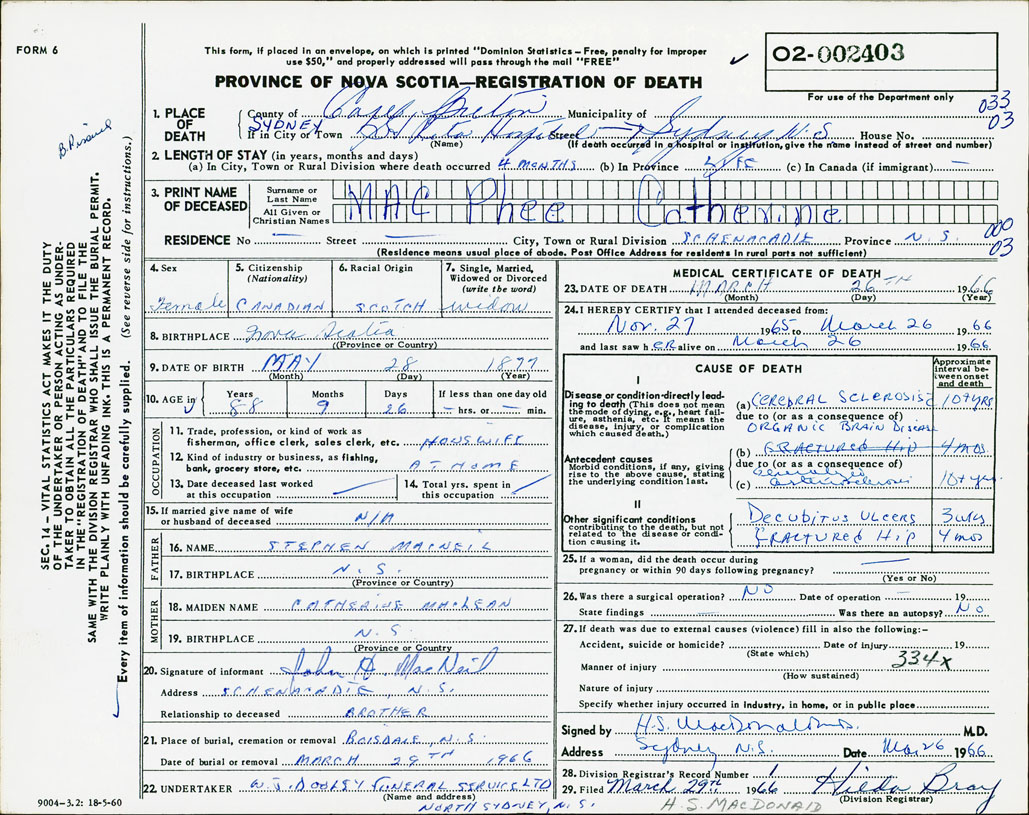 FORM 6
This form, if placed in an envelope, on which is printed "Dominion Statistics – Free, penalty for improper
use $50," and properly addressed will pass through the mail "FREE"
02-002403
For use of the Department only
PROVINCE OF NOVA SCOTIA—REGISTRATION OF DEATH
033
03
1. PLACE OF DEATH
County of Cape Breton Municipality of
SYDNEY
If in City or Town Hospital Street Sydney N.S. House No.
(Name) (If death occurred in a hospital or institution, give the name instead of street and number)
2. LENGTH OF STAY (in years, months and days)
(a) In City, Town or Rural Division where death occurred 4 MONTHS (b) In Province LIFE (c) In Canada (if immigrant) —
3. PRINT NAME OF DECEASED
Surname or Last Name MAC Phee Catherine
All Given or Christian Names
000
03
RESIDENCE No — Street — City, Town or Rural Division SCHENACADIE Province N.S.
(Residence means usual place of abode. Post Office Address for residents in rural parts not sufficient)
4. Sex Female
5. Citizenship (Nationality) CANADIAN
6. Racial Origin SCOTCH
7. Single, Married, Widowed or Divorced (write the word) widow
8. BIRTHPLACE Nova Scotia
(Province or Country)
9. DATE OF BIRTH MAY 28 1877
(Month) (Day) (Year)
10. AGE in Years 88 Months 9 Days 26 If less than one day old – hrs. or – min.
OCCUPATION
11. Trade, profession, or kind of work as
fisherman, office clerk, sales clerk, etc. HOUSWIFE
12. Kind of industry or business, as fishing,
bank, grocery store, etc. AT HOME
13. Date deceased last worked
at this occupation
14. Total yrs. spent in
this occupation
15. If married give name of wife
or husband of deceased N/A
FATHER
16. NAME STEPHEN MACNEIL
17. BIRTHPLACE N.S.
(Province or Country)
MOTHER
18. MAIDEN NAME CATHERINE MACLEAN
19. BIRTHPLACE N.S.
(Province or Country)
20. Signature of informant John H. MacNeil
Address SCHENACADIE, N.S.
Relationship to deceased BROTHER
21. Place of burial, cremation or removal BOISDALE, N.S.
Date of burial or removal MARCH 29TH 1966
22. UNDERTAKER W.J. DOOLEY FUNERAL SERVICE LTD
(Name and address)
NORTH SYDNEY, N.S.
MEDICAL CERTIFICATE OF DEATH
23. DATE OF DEATH MARCH 26TH 1966
(Month) (Day)
24. I HEREBY CERTIFY that I attended deceased from:
Nov. 27 1965 to March 26 1966
and last saw hER alive on March 26 1966
CAUSE OF DEATH
Approximate interval between onset and death
I
Disease or condition directly leading to death (This does not mean the mode of dying, e.g., heart failure, asthenia, etc. It means the disease, injury, or complication which caused death.)
(a) CEREBRAL SCLEROSIS 10+yrs
due to (or as a consequence of)
ORGANIC BRAIN DISEASE
Antecedent causes
Morbid conditions, if any, giving rise to the above cause, stating the underlying condition last.
(b) FRACTURED HIP 4 mos
due to (or as a consequence of)
(c) 10+yrs
II
Other significant conditions
contributing to the death, but not related to the disease or condition causing it.
DECUBITUS ULCERS 3 wks
FRACTURED HIP 4 mos
25. If a woman, did the death occur during
pregnancy or within 90 days following pregnancy? —
(Yes or No)
26. Was there a surgical operation? NO Date of operation – 19
State findings — Was there an autopsy? No
27. If death was due to external causes (violence) fill in also the following:–
Accident, suicide or homicide? Date of injury 19
(State which)
334x
Manner of injury
(How sustained)
Nature of injury
Specify whether injury occurred in industry, in home, or in public place
Signed by H.S. MacDonald M.D.
Address Sydney N.S. Date Mar 26 1966
28. Division Registrar's Record Number 1
29. Filed March 29th 1966 Hilda Bray
(Division Registrar)
H.S. MACDONALD
SEC. 14 – VITAL STATISTICS ACT MAKES IT THE DUTY
OF THE UNDERTAKER OR PERSON ACTING AS UNDER-
TAKER TO OBTAIN ALL THE PARTICULARS REQUIRED
IN THE "REGISTRATION OF DEATH" AND TO FILE THE
SAME WITH THE DIVISION REGISTRAR WHO SHALL ISSUE THE BURIAL PERMIT.
WRITE PLAINLY WITH UNFADING INK. THIS IS A PERMANENT RECORD.
Every item of information should be carefully supplied. (See reverse side for instructions.)
9004–3.2: 18-5-60